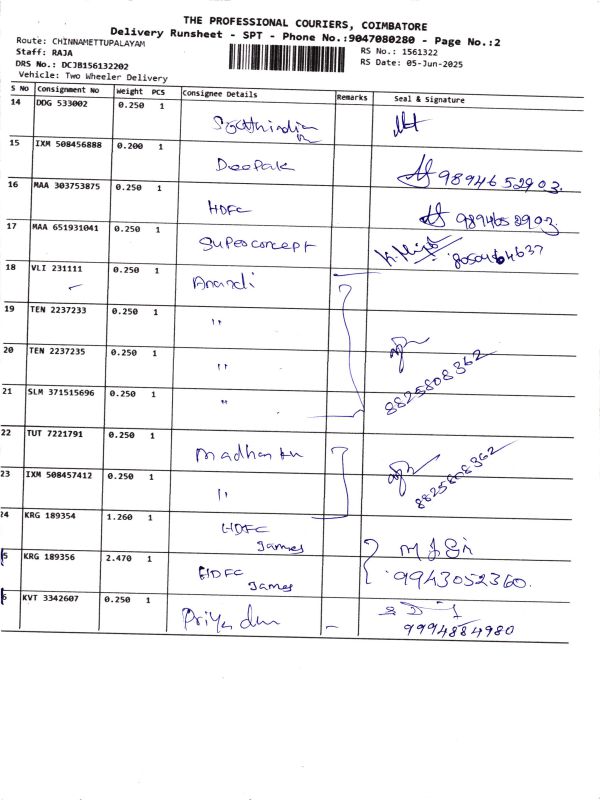 THE PROFESSIONAL COURIERS, COIMBATORE
Delivery Runsheet - SPT - Phone No.:9047080280 - Page No.:2
Route: CHINNAMETTUPALAYAM
Staff: RAJA
DRS No.: DCJB156132202
Vehicle: Two Wheeler Delivery
RS No.: 1561322
RS Date: 05-Jun-2025
S No Consignment No Weight PCS Consignee Details Remarks Seal & Signature
14 DDG 533002 0.250 1 Southindian
15 IXM 508456888 0.200 1 Deepak 9894652903.
16 MAA 303753875 0.250 1 HDFC 9894652903
17 MAA 651931041 0.250 1 Superconcept
18 VLI 231111 0.250 1 Anandi
19 TEN 2237233 0.250 1 "
20 TEN 2237235 0.250 1 " 8825808362
21 SLM 371515696 0.250 1 "
22 TUT 7221791 0.250 1
23 IXM 508457412 0.250 1 " 8825808362
24 KRG 189354 1.260 1 HDFC James
5 KRG 189356 2.470 1 HDFC James 9943052360.
6 KVT 3342607 0.250 1 - 9994884980